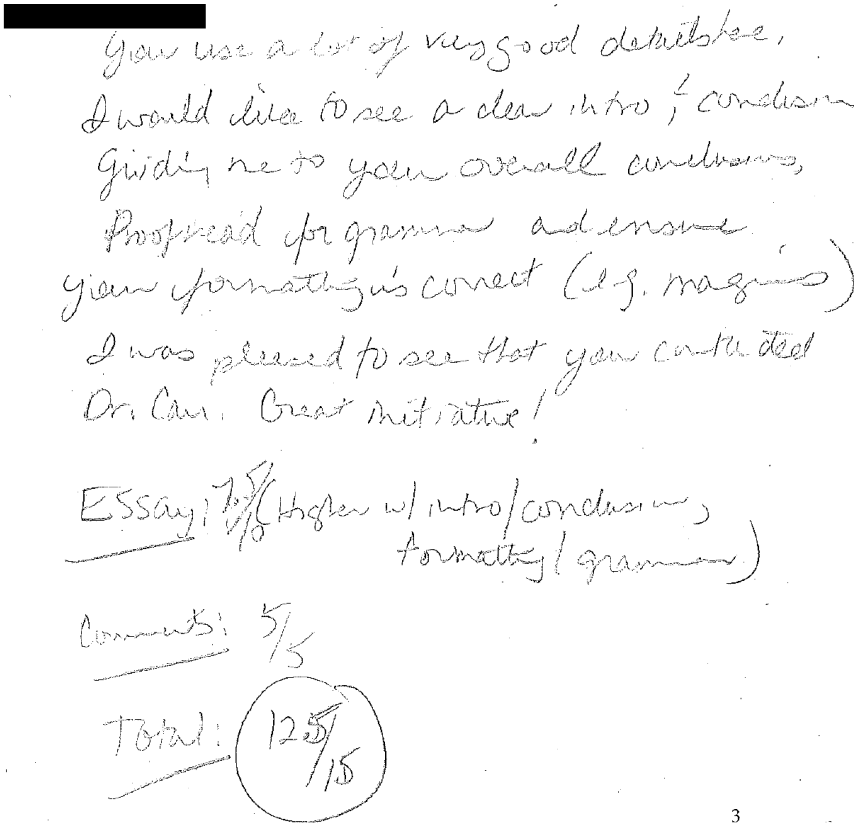 You use a lot of very good details here.
I would like to see a clear intro & conclusion
Guiding me to your overall conclusions,
Proofread for grammar and ensure
your formatting is correct (e.g. margins)
I was pleased to see that you contacted
Dr. Carr. Great initiative!
Essay: 7.5/10 (Higher w/ intro/conclusion,
formatting/grammar)
Comments: 5/5
Total: 12.5/15
3